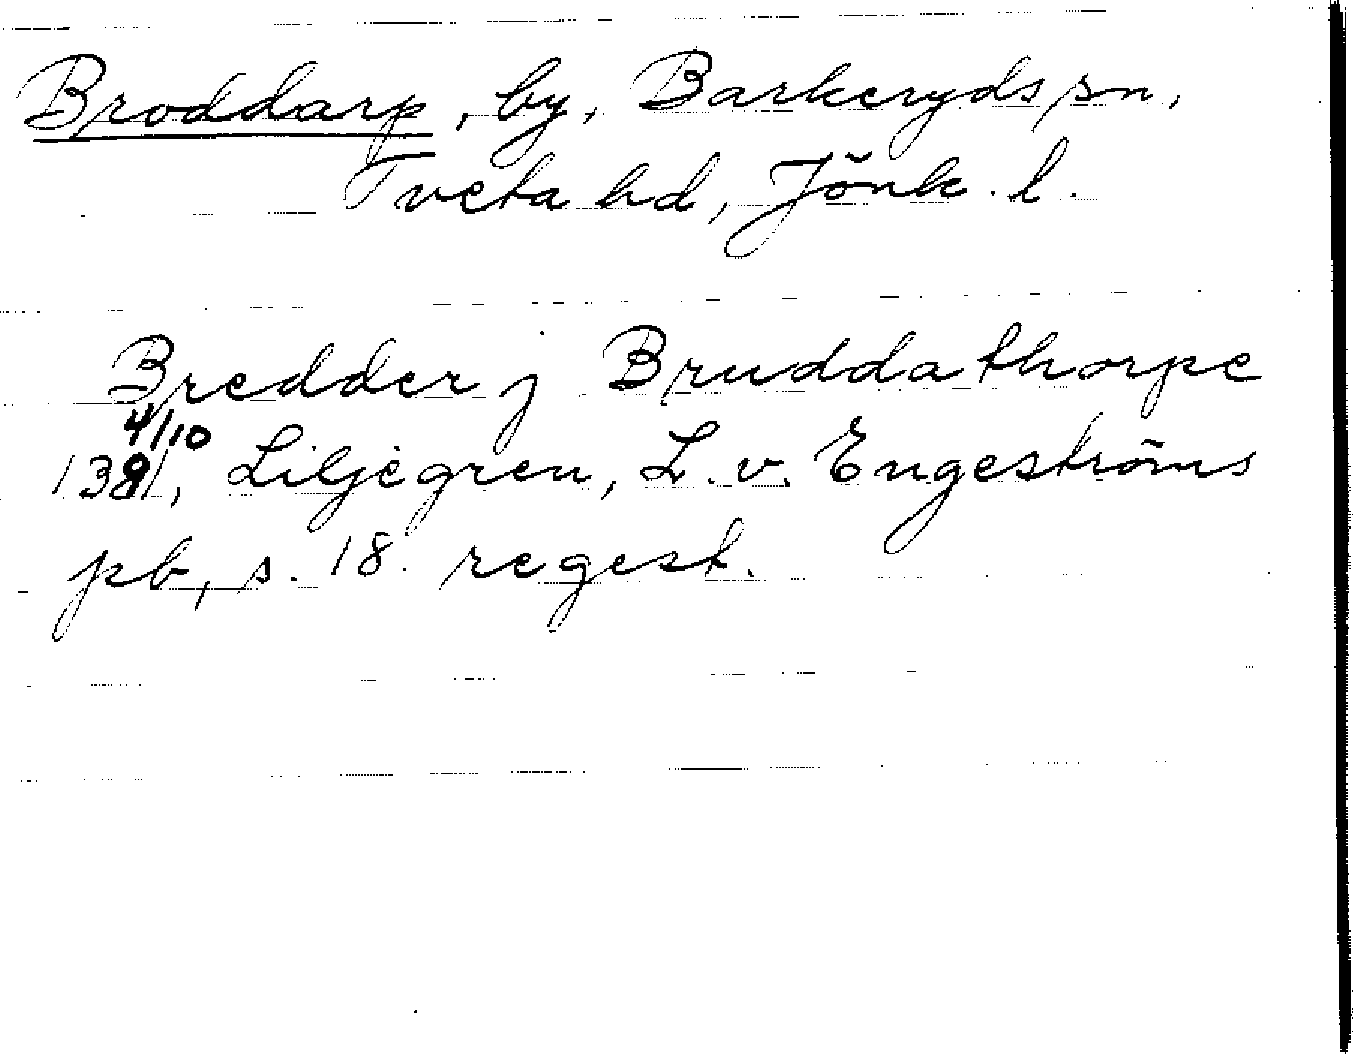 Broddarp, by, Barkeryds sn,
Tveta hd, Jönk. l.
Bredder j Bruddathorpe
4/10
1391, Liljegren, L. v. Engeströms
pb, s. 18. regest.